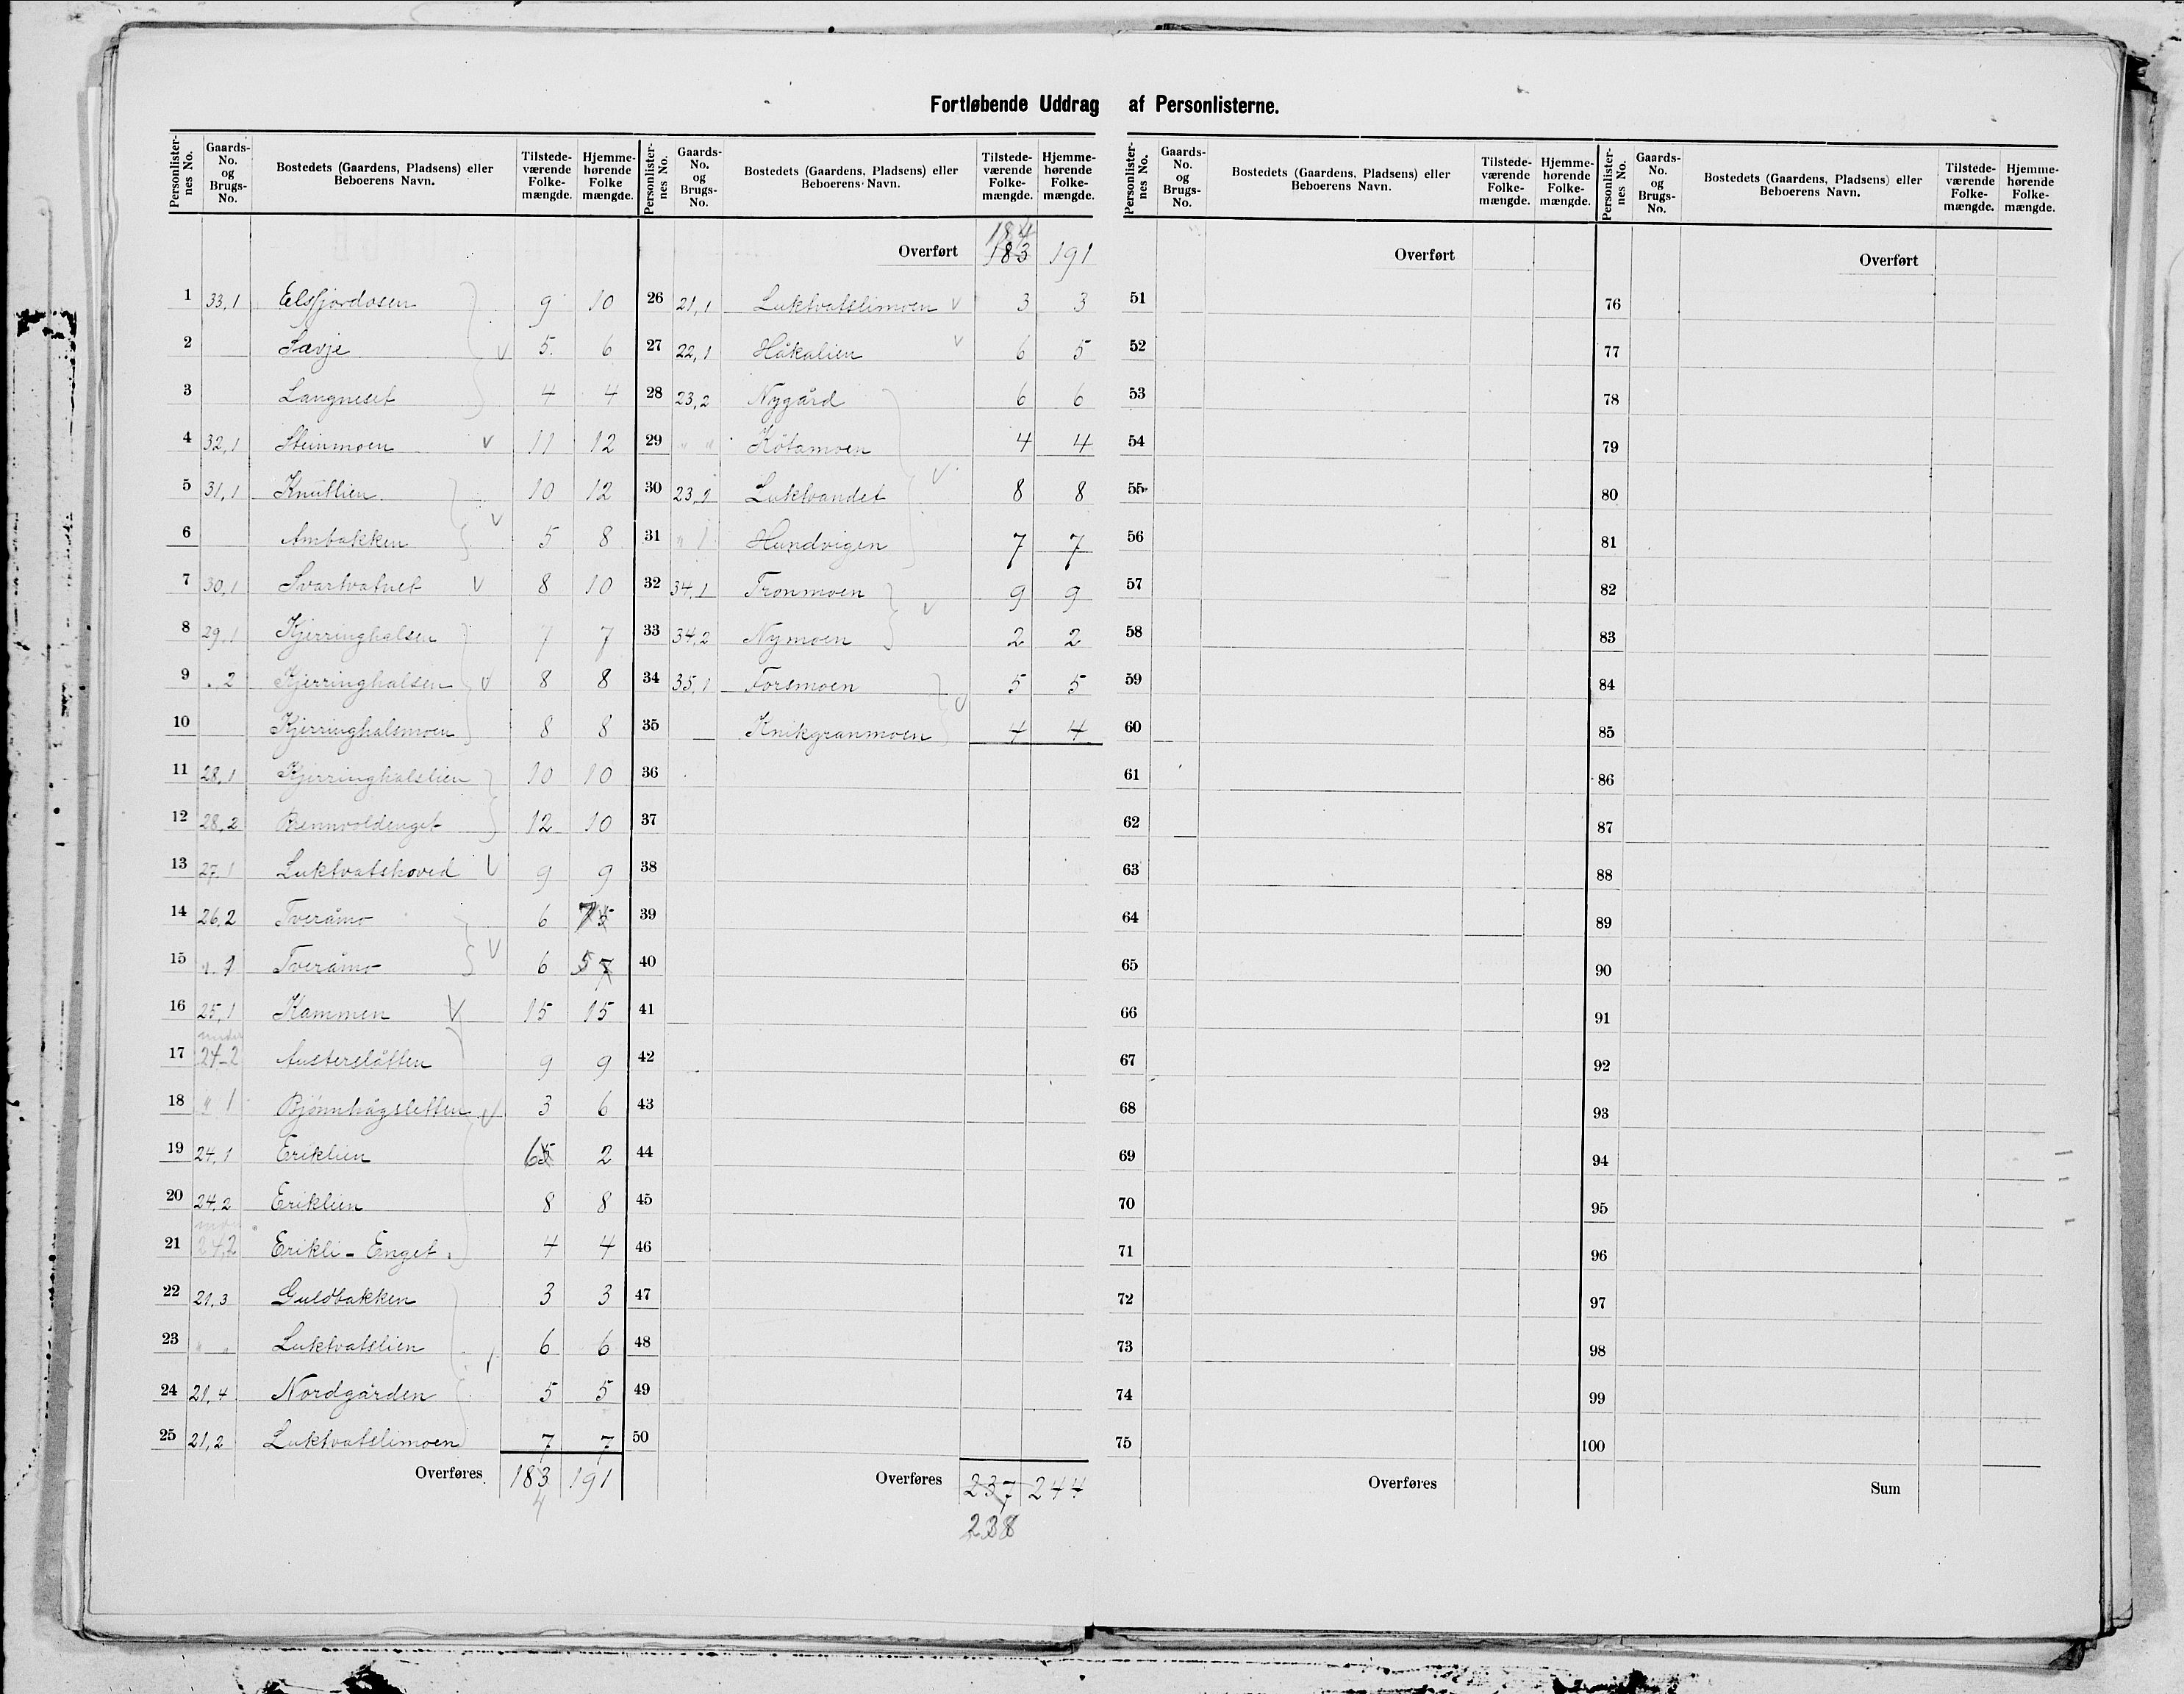 Fortløbende Uddrag af Personlisterne.
Personlister-nes No. Gaards-No. og Brugs-No. Bostedets (Gaardens, Pladsens) eller Beboerens Navn. Tilstede-værende Folke-mængde. Hjemme-hørende Folke mængde.
1 33,1 Elsfjordosen 9 10
2 Sævje 5 6
3 Langneset 4 4
4 32,1 Steinmoen 11 12
5 31,1 Knutlien 10 12
6 Ambakken 5 8
7 30,1 Svartvatnet 8 10
8 29,1 Kjerringhalsen 7 7
9 „ 2 Kjerringhalsen 8 8
10 Kjerringhalsmoen 8 8
11 28,1 Kjerringhalslien 10 10
12 28,2 Brennvoldenget 12 10
13 27,1 Luktvatshoved 9 9
14 26,2 Tveråmo 6 7 5
15 „ 1 Tveråmo 6 5 7
16 25,1 Kammen 15 15
17 under 24-2 Austerslåtten 9 9
18 „ 1 Bjønnhågsletten 3 6
19 24,1 Eriklien 6 5 2
20 24,2 Eriklien 8 8
21 24,2 Erikli-Enget 4 4
22 21,3 Guldbakken 3 3
23 „ „ Luktvatslien 6 6
24 21,4 Nordgården 5 5
25 21,2 Luktvatslimoen 7 7
Overføres 183 191
4
Personlister-nes No. Gaards-No. og Brugs-No. Bostedets (Gaardens, Pladsens) eller Beboerens Navn. Tilstede-værende Folke-mængde. Hjemme-hørende Folke-mængde.
184
Overført 183 191
26 21,1 Luktvatslimoen 3 3
27 22,1 Håkalien 6 5
28 23,2 Nygård 6 6
29 „ „ Kåtamoen 4 4
30 23,1 Luktvandet 8 8
31 „ 1 Hundvigen 7 7
32 34,1 Tronmoen 9 9
33 34,2 Nymoen 2 2
34 35,1 Forsmoen 5 5
35 Knikgranmoen 4 4
36
37
38
39
40
41
42
43
44
45
46
47
48
49
50
Overføres 237 244
238
Personlister-nes No. Gaards-No. og Brugs-No. Bostedets (Gaardens, Pladsens) eller Beboerens Navn. Tilstede-værende Folke-mængde. Hjemme-hørende Folke-mængde.
Overført
51
52
53
54
55
56
57
58
59
60
61
62
63
64
65
66
67
68
69
70
71
72
73
74
75
Overføres
Personlister-nes No. Gaards-No. og Brugs-No. Bostedets (Gaardens, Pladsens) eller Beboerens Navn. Tilstede-værende Folke-mængde. Hjemme-hørende Folke-mængde.
Overført
76
77
78
79
80
81
82
83
84
85
86
87
88
89
90
91
92
93
94
95
96
97
98
99
100
Sum